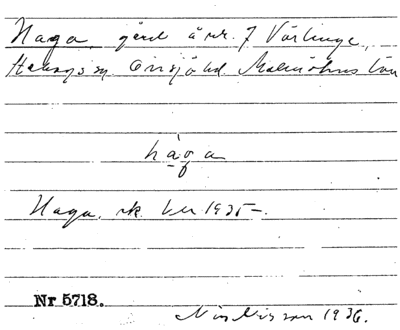 Haga, gård å nr. 7 Värlinge,
sn Onsjö hd. Malmöhus län
håga
Haga. rk. ber 1935 —.
Nr 5718.
Nils Nilsson 1936.